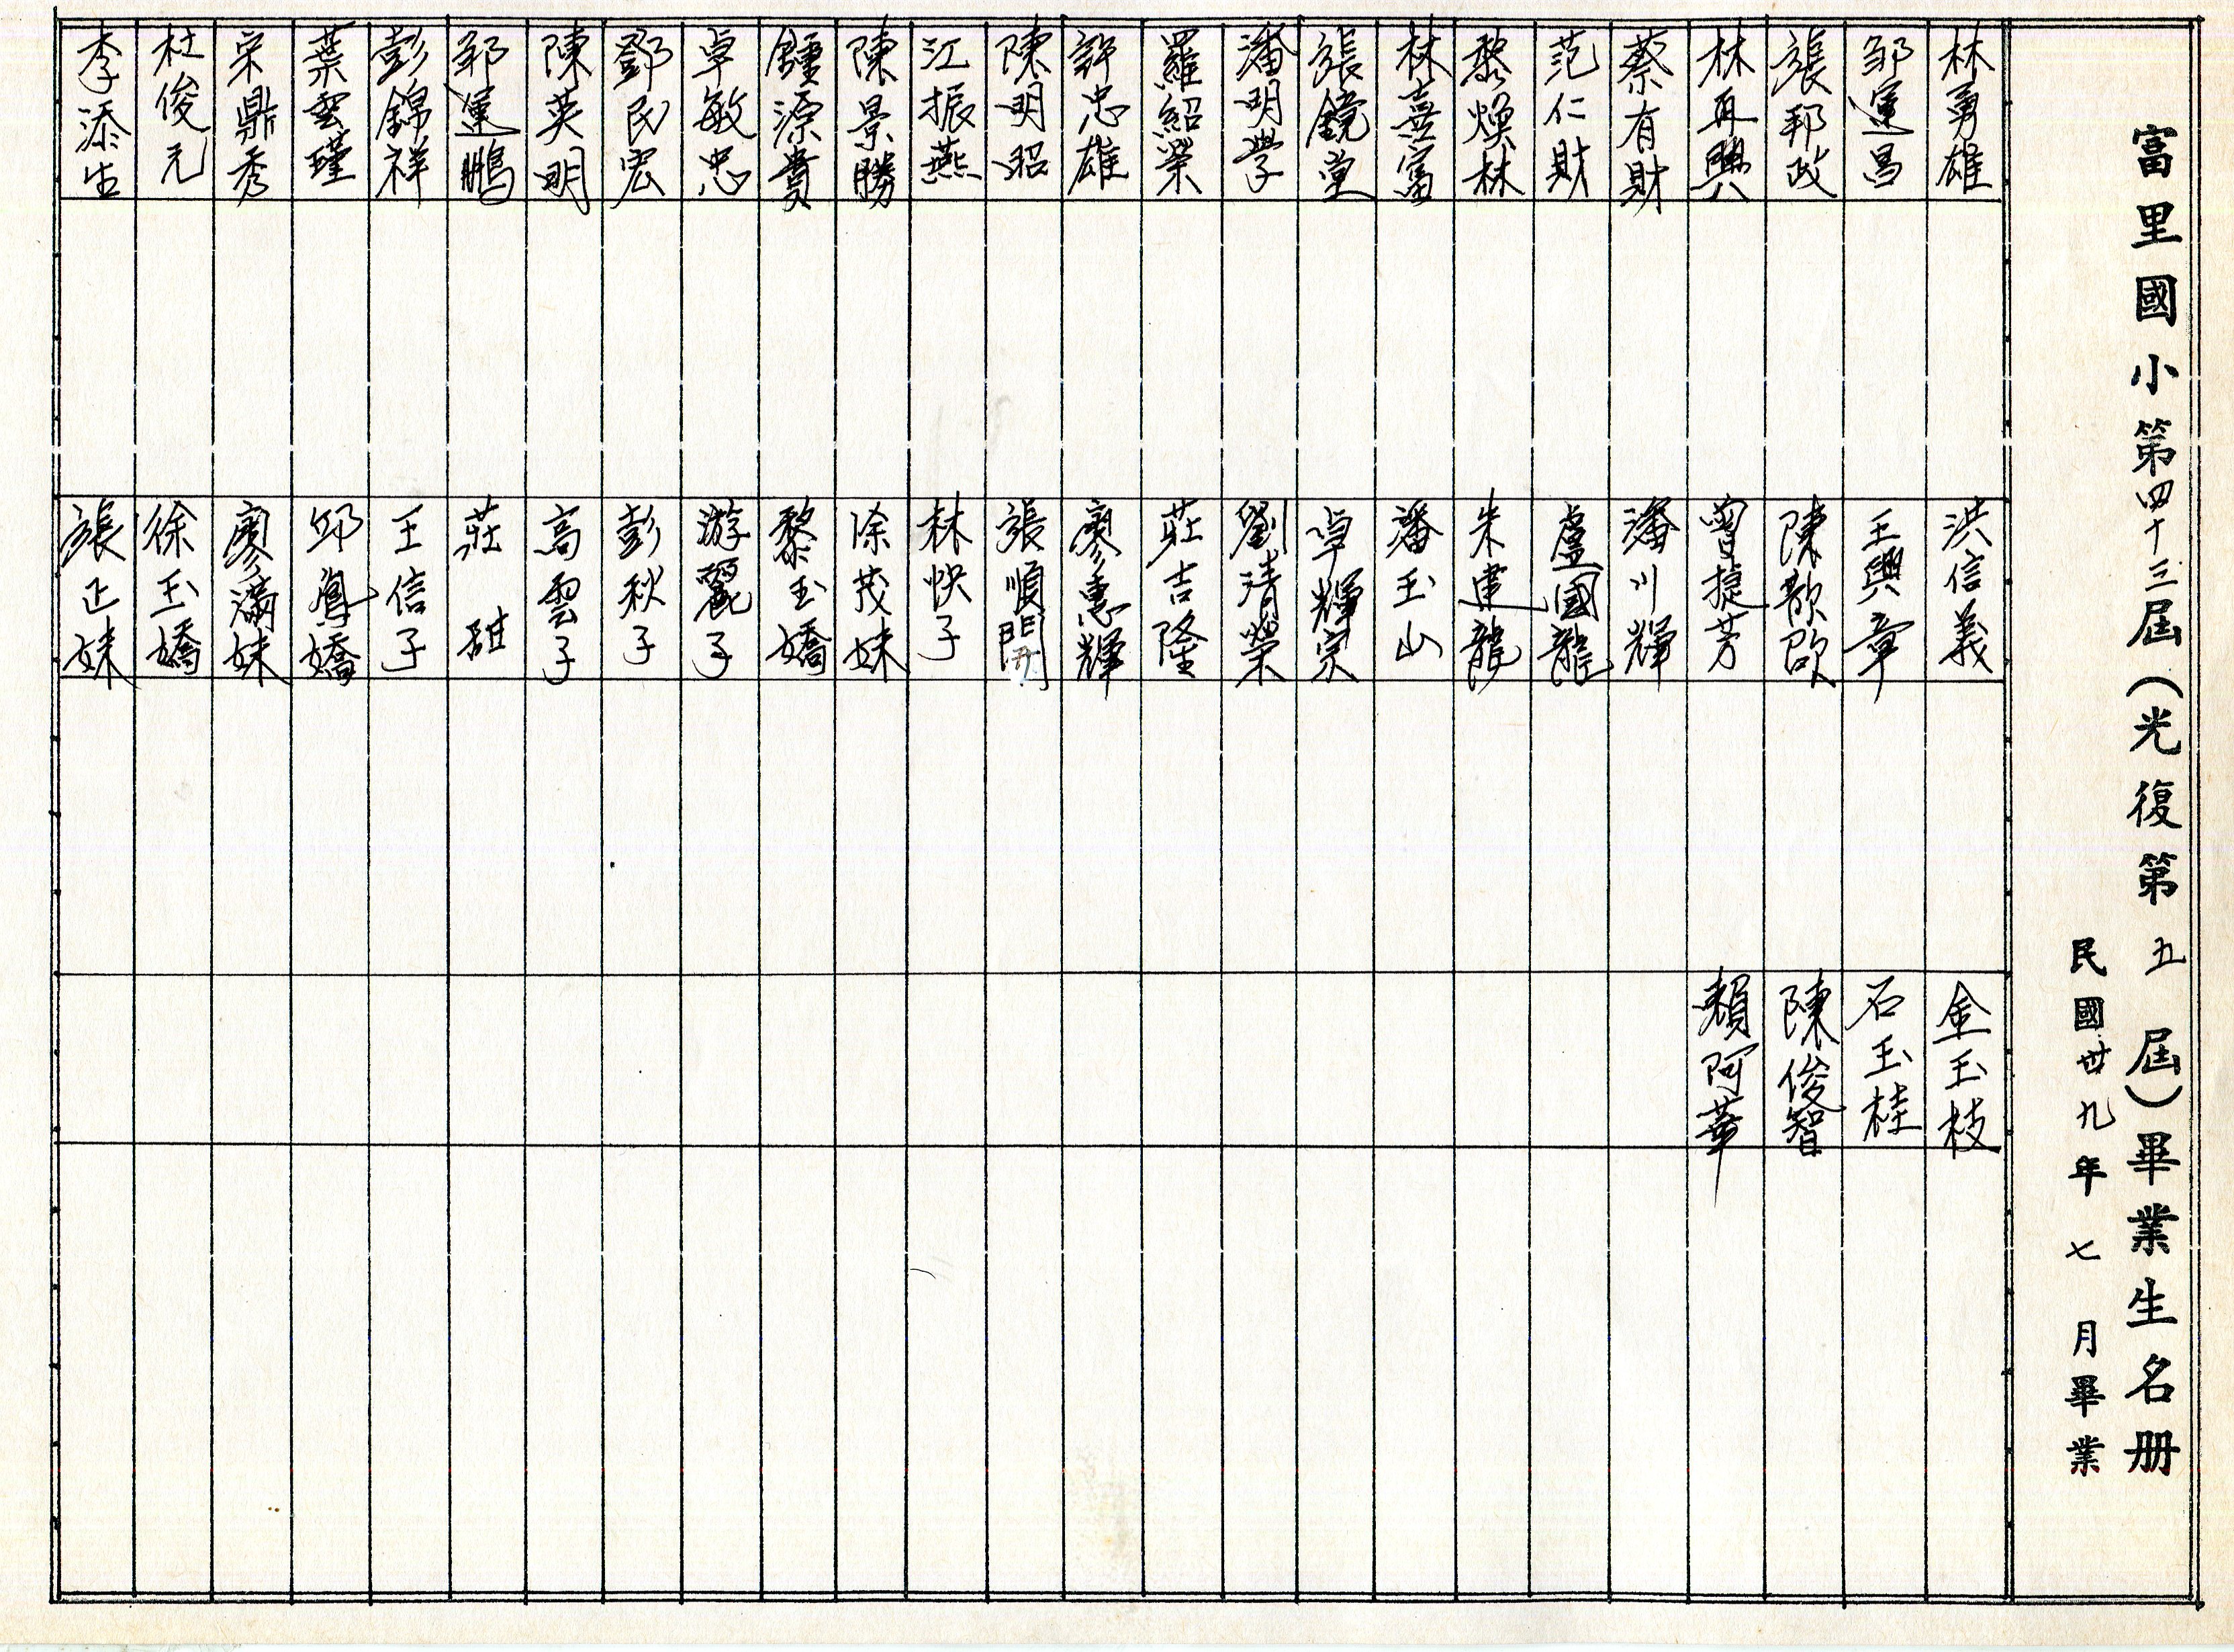 富里國小第四十三屆(光復第五屆)畢業生名册
民國卅九年七月畢業
林勇雄
邹運昌
張邦政
林再興
蔡有財
范仁財
黎煥林
林喜富
張鏡堂
潘明學
羅紹榮
許忠雄
陳明昭
江振燕
陳景勝
鍾源貴
卓敏忠
鄧民宏
陳英明
邹運鵬
彭錦祥
葉雲瑾
宋鼎秀
杜俊元
李添生
洪信義
王興章
陳歆
曾捷芳
潘川輝
盧國龍
朱建龍
潘玉山
卓輝宗
劉清榮
莊吉隆
廖惠輝
張順開
林快子
涂茂妹
黎玉嬌
游麗子
彭秋子
高雲子
莊甜
王信子
邱鳳嬌
廖滿妹
徐玉嬌
張正妹
金玉枝
石玉桂
陳俊智
賴阿華